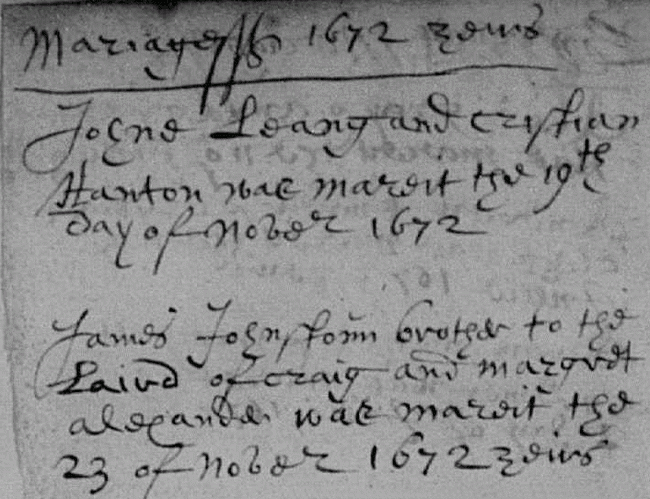 Mariagess 1672 zeirs
Johne Leang and Cristian
Hanton was mareit the 19th
day of Nober 1672
James Johnstoun brother to the
Laird of Craig and margret
alexander was mareit the
23 of Nober 1672 zeirs